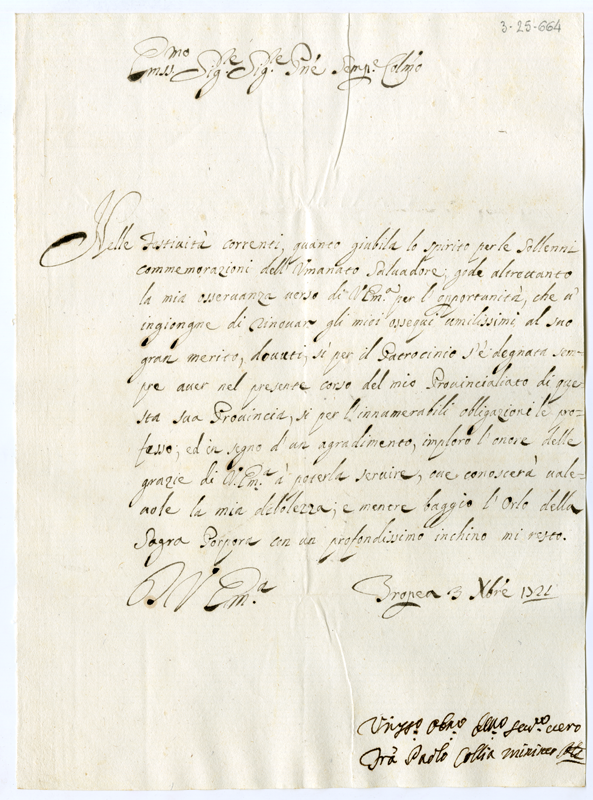 3-25-664
Em.mo Sig.re Sig.re Pñe Semp.e Col.mo
Nelle Festività correnti, quanto giubila lo spirito per le sollenni
commemorazioni dell'Vmanato Saluadore; gode altrettanto
la mia osseruanza verso di V.Em.a per l'opportunità, che n'
ingiongne di rinouar gli miei ossequi umilissimi al suo
gran merito, douuti, sì per il Patrocinio s'è degnata sem-
pre auer nel presente corso del mio Provincialato di que
sta sua Prouincia, sì per l'innumerabili obligazioni le pro-
fesso; ed in segno d'un agradimento, imploro l'onore delle
grazie di V.Em.a à poterla seruire, oue conoscerà uale-
uole la mia debolezza; e mentre baggio l'Orlo della
Sagra Porpora con un profondissimo inchino mi resto.
D V Em.a
Tropea 3 Xbre 1721
Obl.mo seru.re vero
Frà Paolo Collia